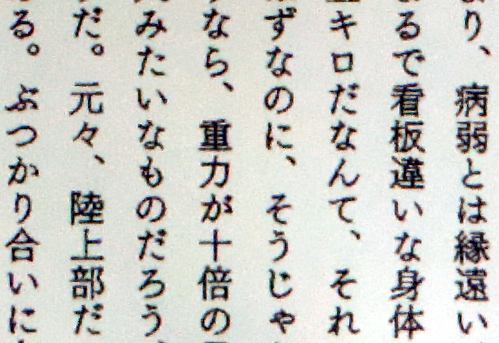 より、病弱とは縁遠い
まるで看板違いな身体
キロだなんて、それ
ずなのに、そうじゃ
なら、重力が十倍の
みたいなものだろう
だ。元々、陸上部だ
る。ぶつかり合いに